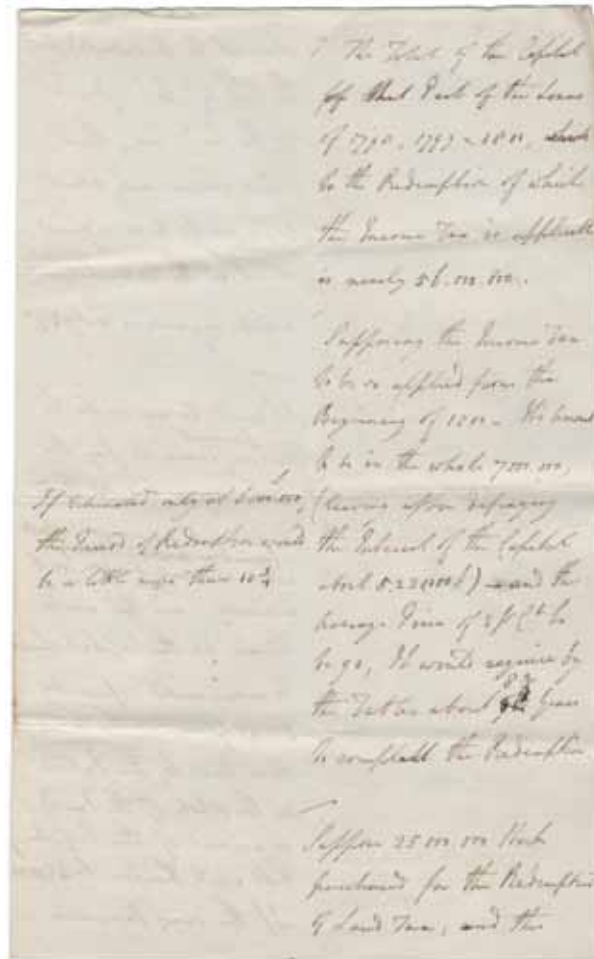 The Total of the Capital
of that Part of the Loans
of 1798, 1799 & 1800,
to the Redemption of which
the Income Tax is applicable
is nearly 56.000.000.
Supposing the Income Tax
to be so applied from the
Beginning of 1800 - its amount
to be in the whole 7000.000,
(leaving after defraying
the Interest of the Capital
about 5.23000£) and the
average Price of 3 pr Cts to
be 90, It would require by
the Tables about Years
to compleat the Redemption
If estimated only at 6.000.000,
the Period of Redemption would
be a little more than 10¾
Suppose 25.000.000 Stock
purchased for the Redemption
of Land Tax, and the